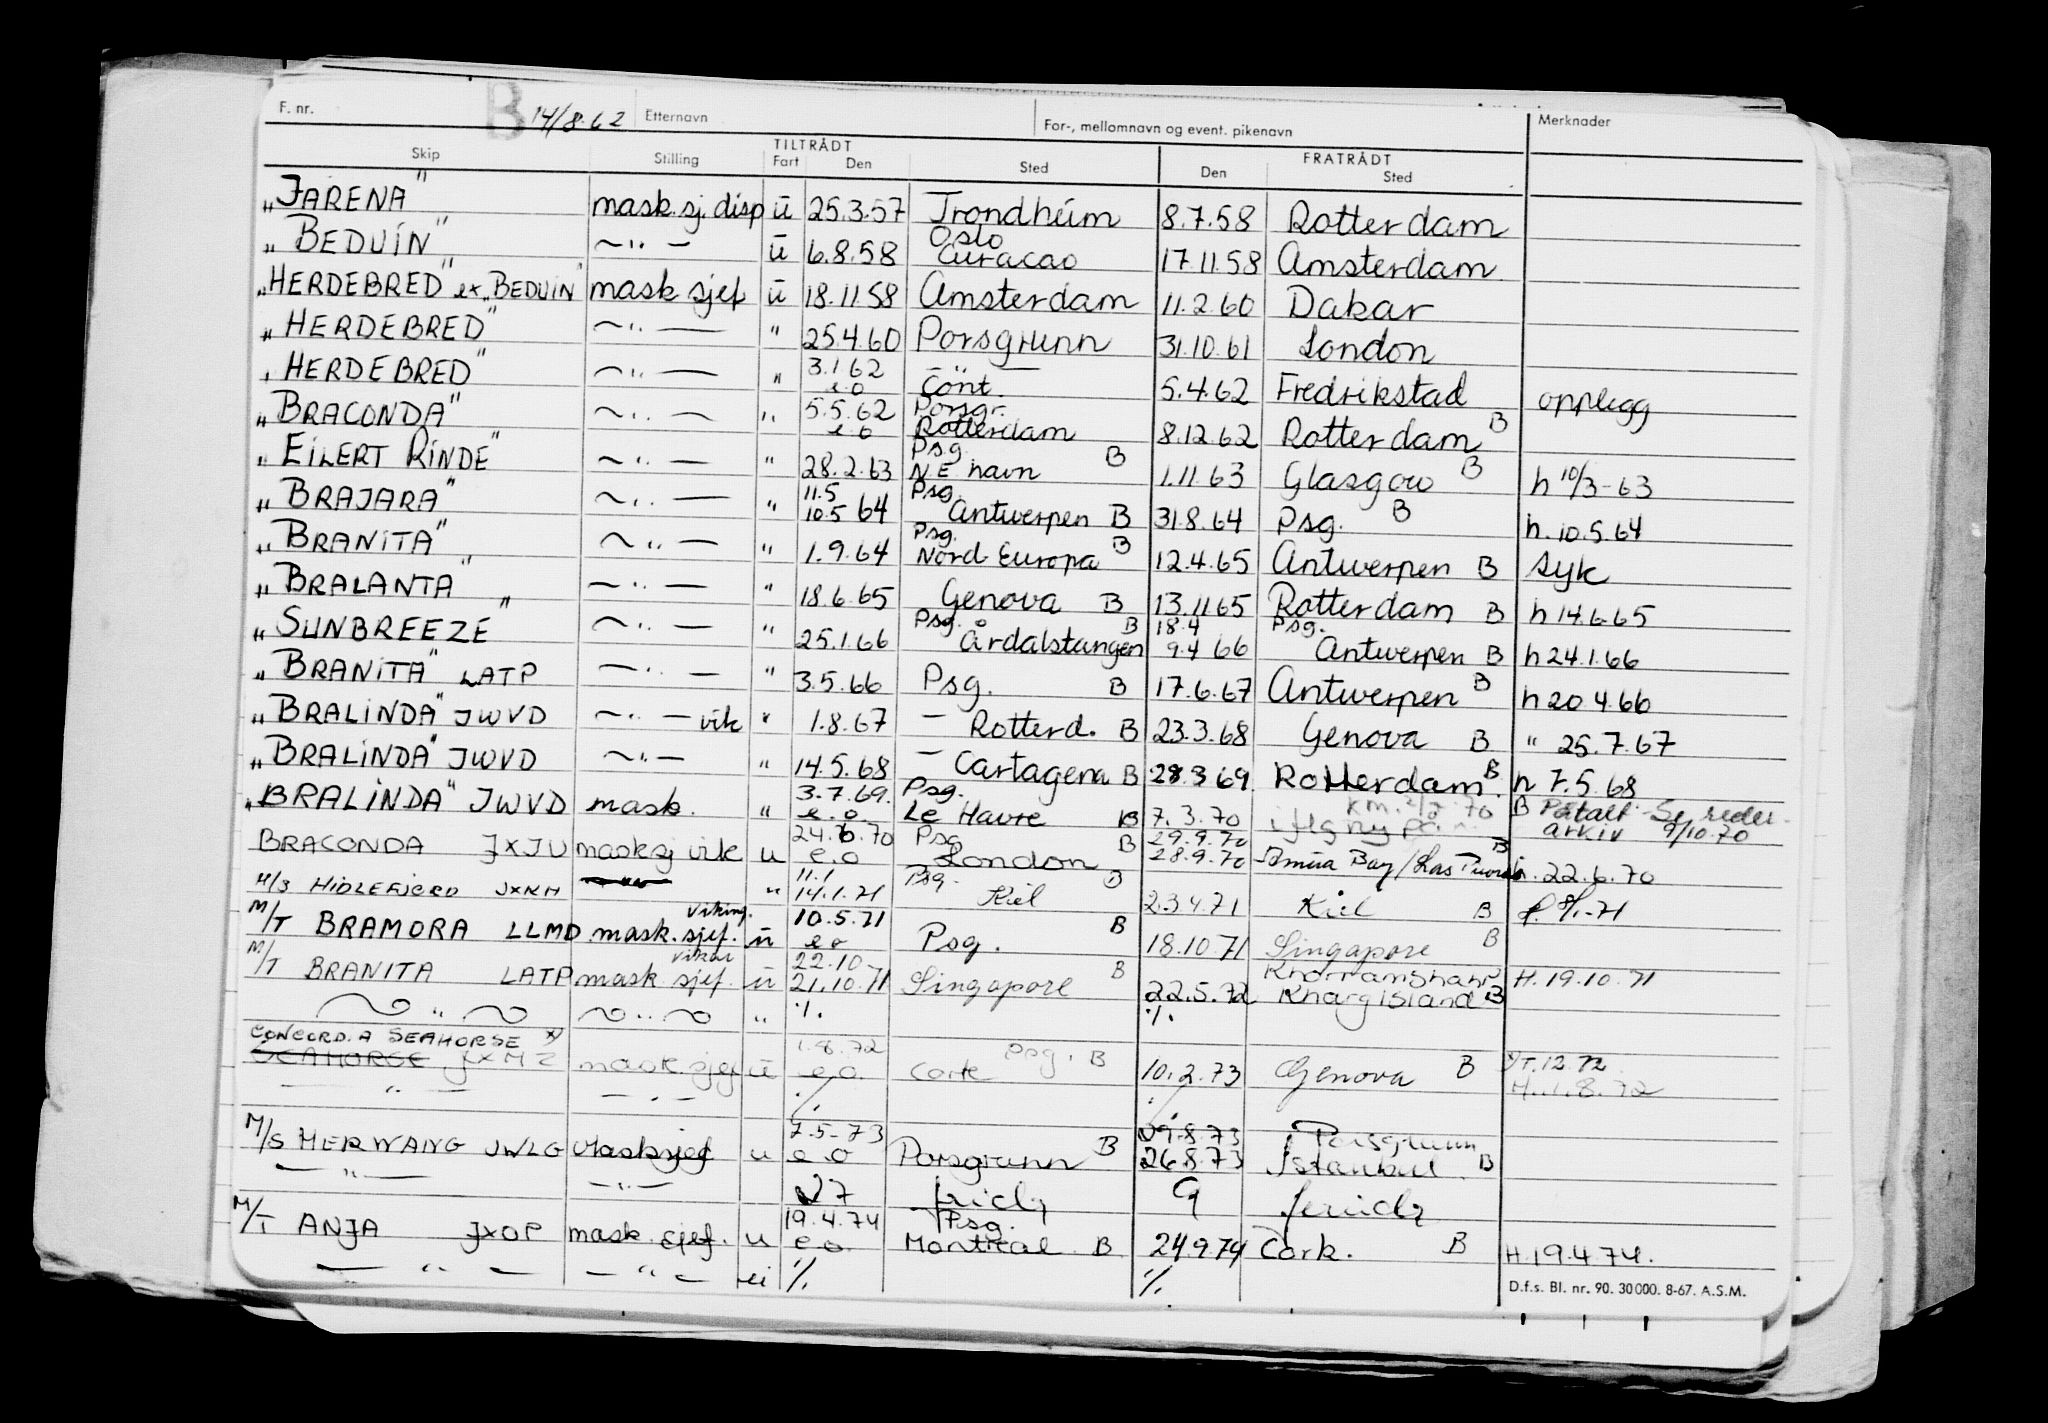 F. nr. B 14/8.62 Etternavn For-, mellomnavn og event. pikenavn Merknader
Skip Stilling TILTRÅDT Fart Den Sted FRATRÅDT Den Sted
„JARENA" mask.sj. disp ū 25.3.57 Trondheim 8.7.58 Rotterdam
„BEDUIN" ~ " — ū 6.8.58 Oslo Curacao 17.11.58 Amsterdam
„HERDEBRED" ex „BEDUIN" mask sjef ū 18.11.58 Amsterdam 11.2.60 Dakar
„HERDEBRED" ~ " — " 25.4.60 Porsgrunn 31.10.61 London
„HERDEBRED" ~ " — " 3.1.62 e.o — " — Cont. 5.4.62 Fredrikstad opplegg
„BRACONDA" ~ " — " 5.5.62 e.o Porsgr. Rotterdam 8.12.62 Rotterdam B
„EILERT RINDE" ~ " — " 28.2.63 Psg. N.E havn B 1.11.63 Glasgow B h 10/3-63
„BRAJARA" ~ " — " 11.5 10.5 64 Psg. Antwerpen B 31.8.64 Psg. B h. 10.5.64
„BRANITA" ~ " — " 1.9.64 Psg. Nord Europa B 12.4.65 Antwerpen B syk
„BRALANTA" ~ " — " 18.6.65 Genova B 13.11.65 Rotterdam B h 14.6.65
„SUNBREEZE" ~ " — " 25.1.66 Psg. Årdalstangen B 18.4 9.4 66 Psg. Antwerpen B h 24.1.66
„BRANITA" LATP ~ " — " 3.5.66 Psg. B 17.6.67 Antwerpen B h 20.4.66
„BRALINDA" JWVD ~ " — vik " 1.8.67 — Rotterd. B 23.3.68 Genova B " 25.7.67
„BRALINDA" JWVD ~ " — " 14.5.68 — Cartagena B 28.3.69 Rotterdam B h 7.5.68
„BRALINDA" JWVD mask. " 3.7.69. e.o. Psg. Le Havre B 7.3.70 B Påtalt. Se reder-
arkiv 9/10.70
BRACONDA JXJU masksj vik u 24.6.70 e.o Psg London B 29.9.70 28.9.70 Bay/Las B h. 22.6.70
M/S HIDLEFJORD JXKH " 11.1 14.1.71 Psg. Kiel B 23.4.71 Kiel B
M/T BRAMORA LLMD mask. sjef. viking. ū 10.5.71 e o Psg. B 18.10.71 Singapore B
M/T BRANITA LATP mask sjef. vikar ū 22.10 21.10.71 Singapore B 22.5.72 Khorramshahr Kharg Island B H. 19.10.71
~ " ~ ~ " ~ " ./. ./.
CONCORDIA SEAHORSE x)
SEAHORSE JXMZ mask. sjef ū 1.8.72 e.o. Cork Psg. B 10.2.73 Genova B H. 1.8.72
— " — — " — ./. ./.
M/S HERWANG JWLG Masksjef u 7.5-73 e o Porsgrunn B 29.8.73 26.8.73 Porsgrunn Istanbul B
— " — — " — 27 9
M/T ANJA JXOP mask. sjef. u 19.4.74 e.o. Psg. Montreal B 24.9.74 Cork. B H. 19.4.74.
— " — — " — ei ./. ./.
D.f.s. Bl. nr. 90. 30 000. 8-67. A.S.M.